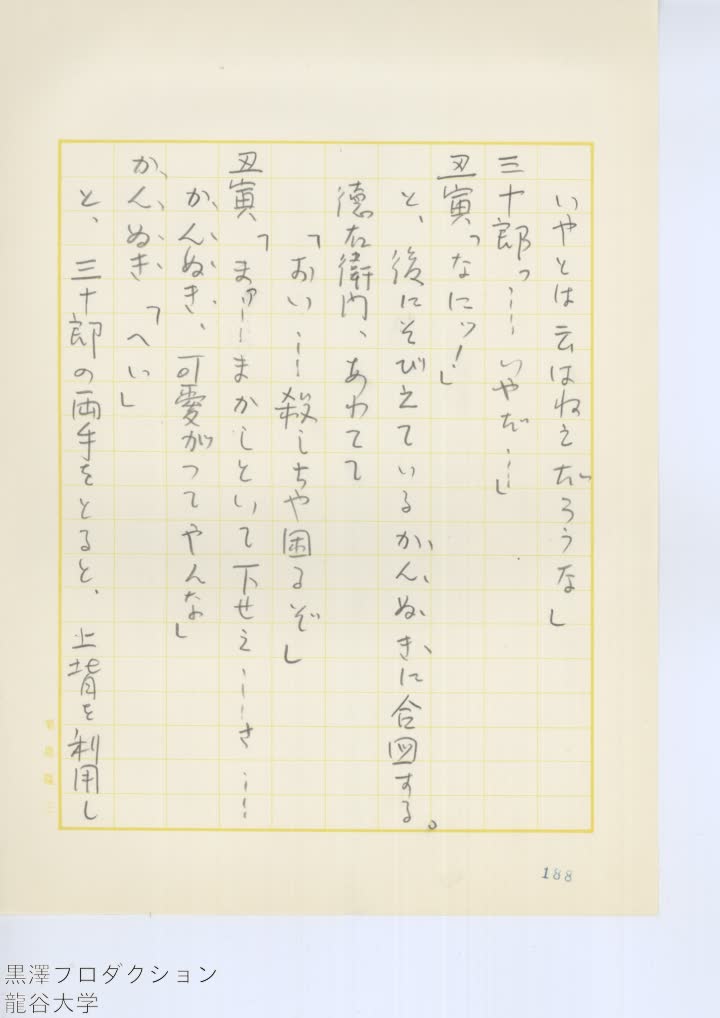 いやとは云はねえだろうな」
三十郎「……いやだ……」
丑寅「なにッ!」
と、後にそびえているかんぬきに合図する。
徳右衛門、あわてて
「おい……殺しちや困るぞ」
丑寅、「まゅ……まかしといて下せえ……さ……
かんぬき、可愛がつてやんな」
かんぬき「へい」
と、三十郎の両手をとると、上背を利用し
188
黒澤プロダクション
龍谷大学